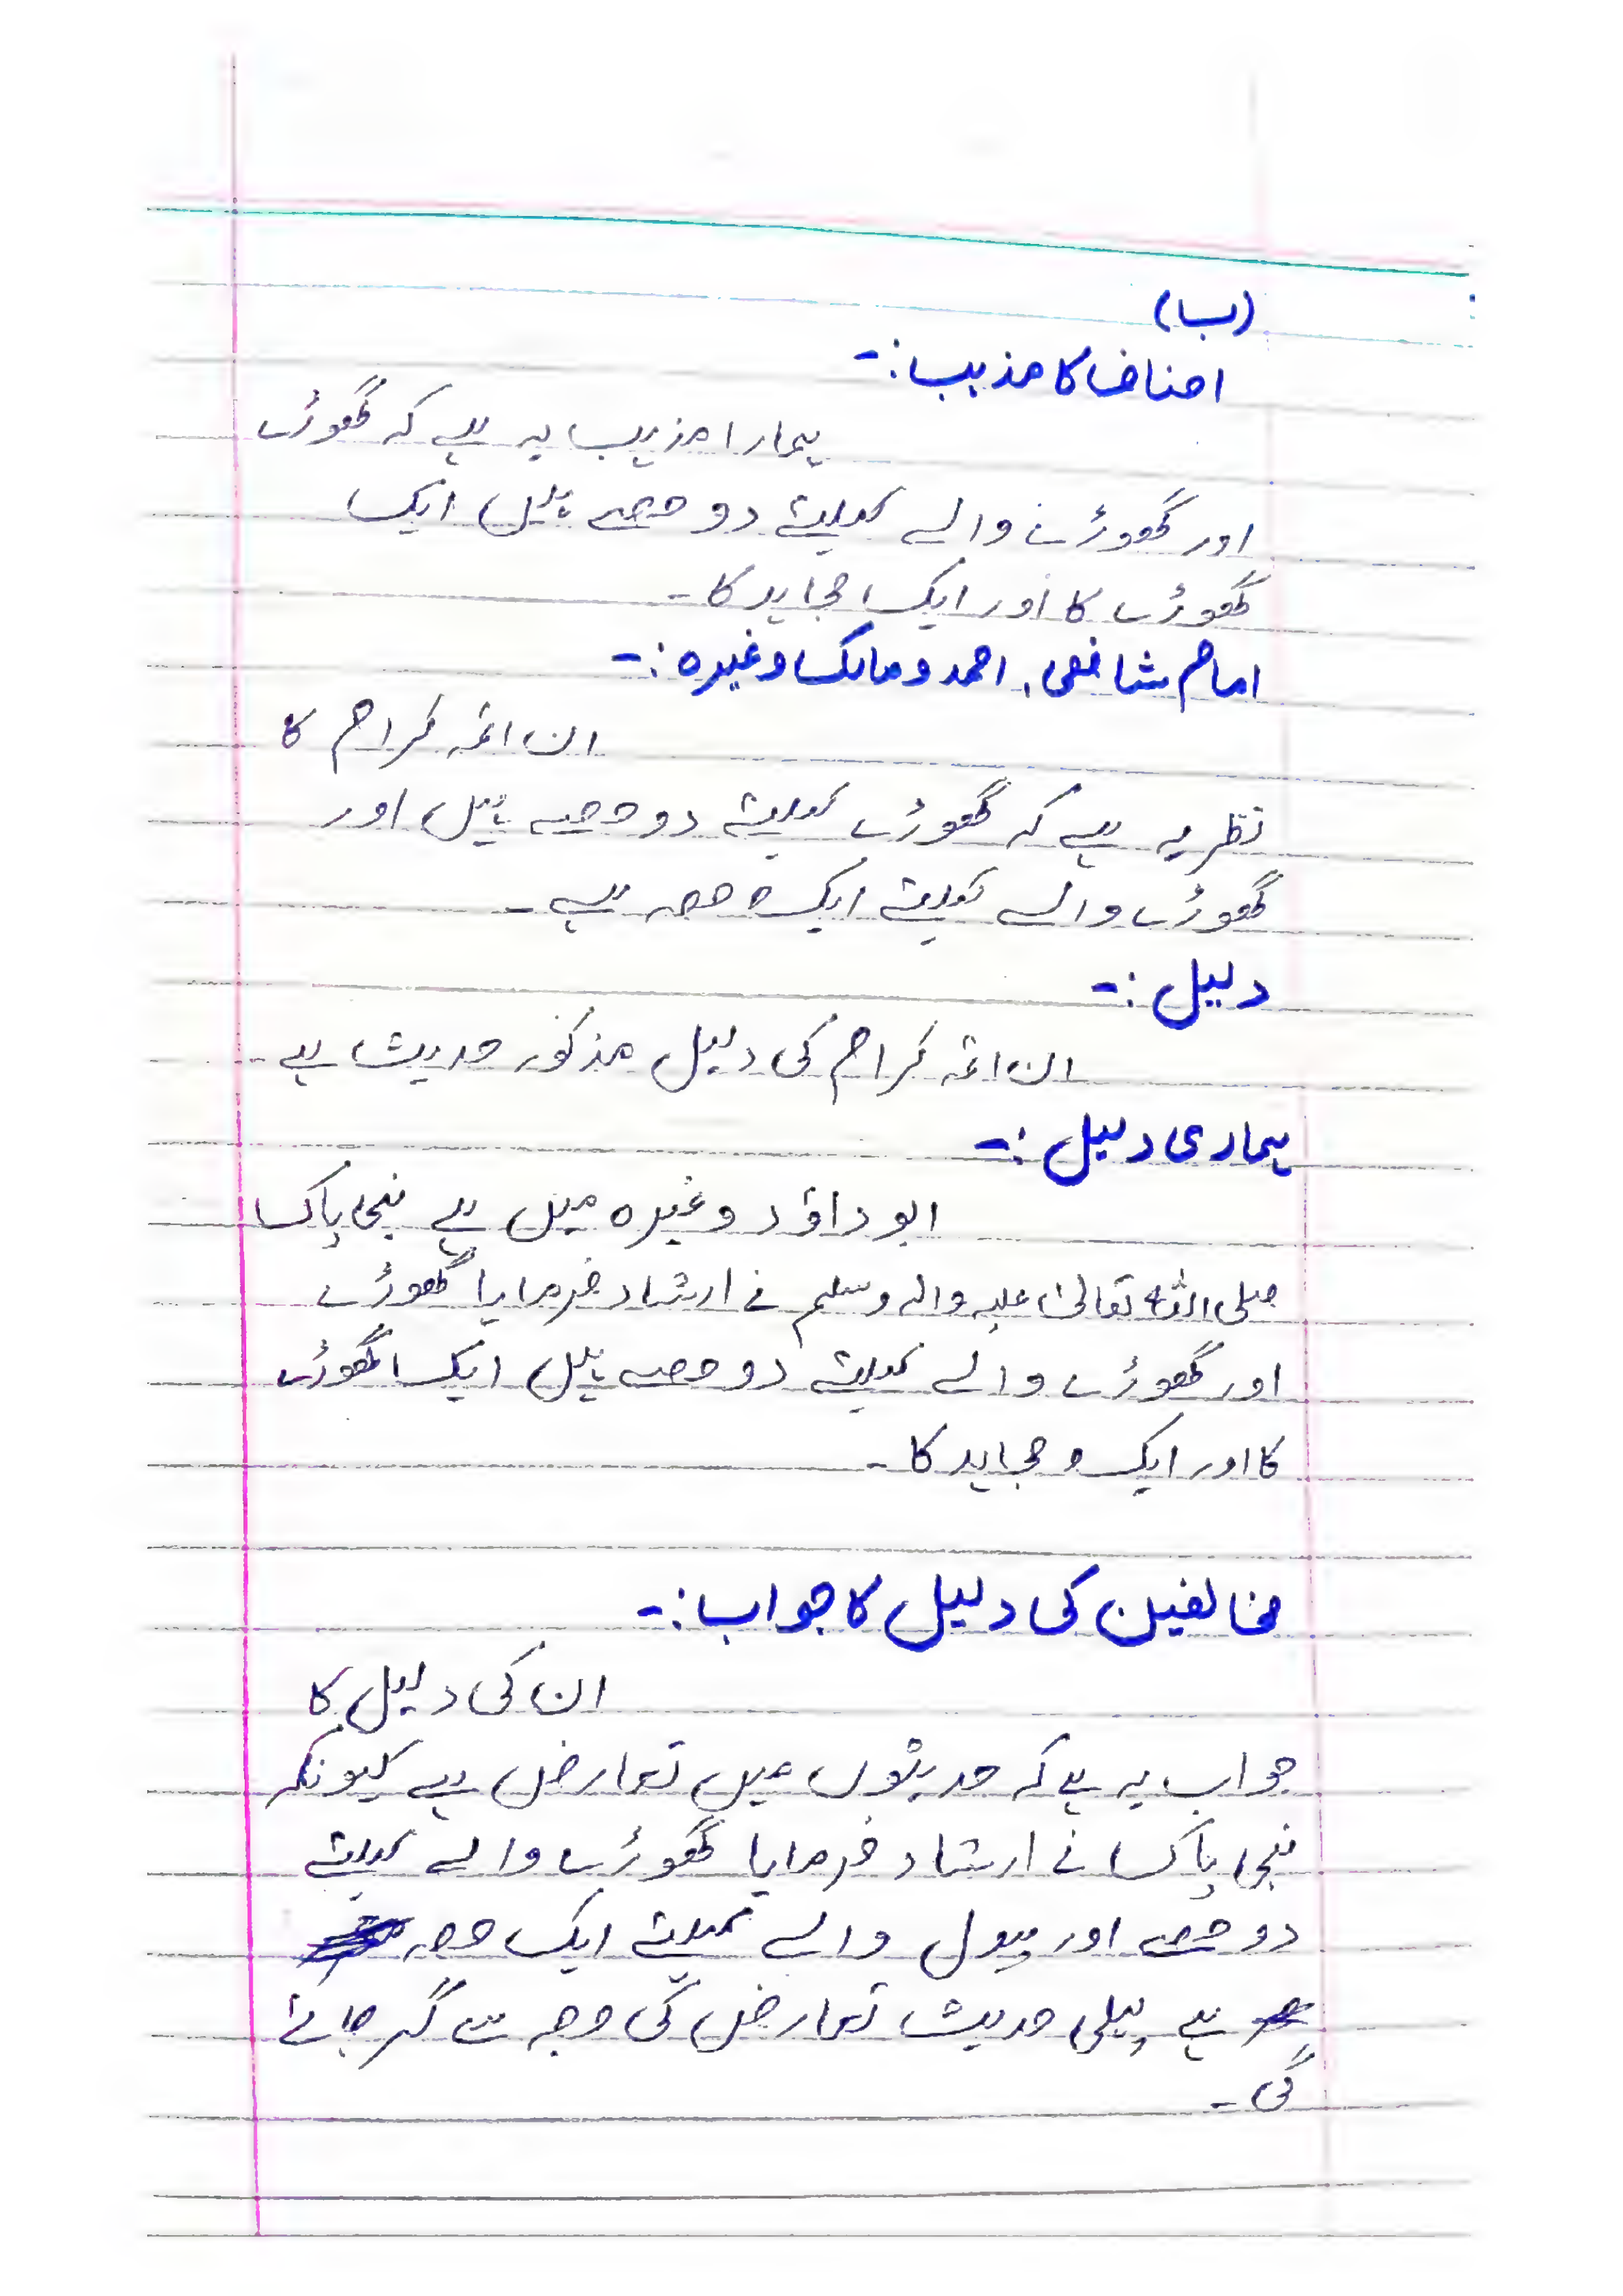 (ب)
احناف کا مذہب :-
ہمارا مذہب یہ ہے کہ گھوڑے
اور گھوڑے والے کیلئے دو حصے ہیں ایک
گھوڑے کا اور ایک مجاہد کا ۔
امام شافعی، احمد و مالک وغیرہ :-
ان ائمہ کرام کا
نظریہ ہے کہ گھوڑے کیلئے دو حصے ہیں اور
گھوڑے والے کیلئے ایک حصہ ہے ۔
دلیل :-
ان ائمہ کرام کی دلیل مذکور حدیث ہے ۔
ہماری دلیل :-
ابو داؤد وغیرہ میں ہے نبی پاک
صلی اللہ تعالیٰ علیہ والہ وسلم نے ارشاد فرمایا گھوڑے
اور گھوڑے والے کیلئے دو حصے ہیں ایک گھوڑے
کا اور ایک مجاہد کا ۔
مخالفین کی دلیل کا جواب :-
ان کی دلیل کا
جواب یہ ہے کہ حدیثوں میں تعارض ہے کیونکہ
نبی پاک نے ارشاد فرمایا گھوڑے والے کیلئے
دو حصے اور پیدل والے کیلئے ایک حصہ
ہے پہلی حدیث تعارض کی وجہ سے گر جائے
گی ۔